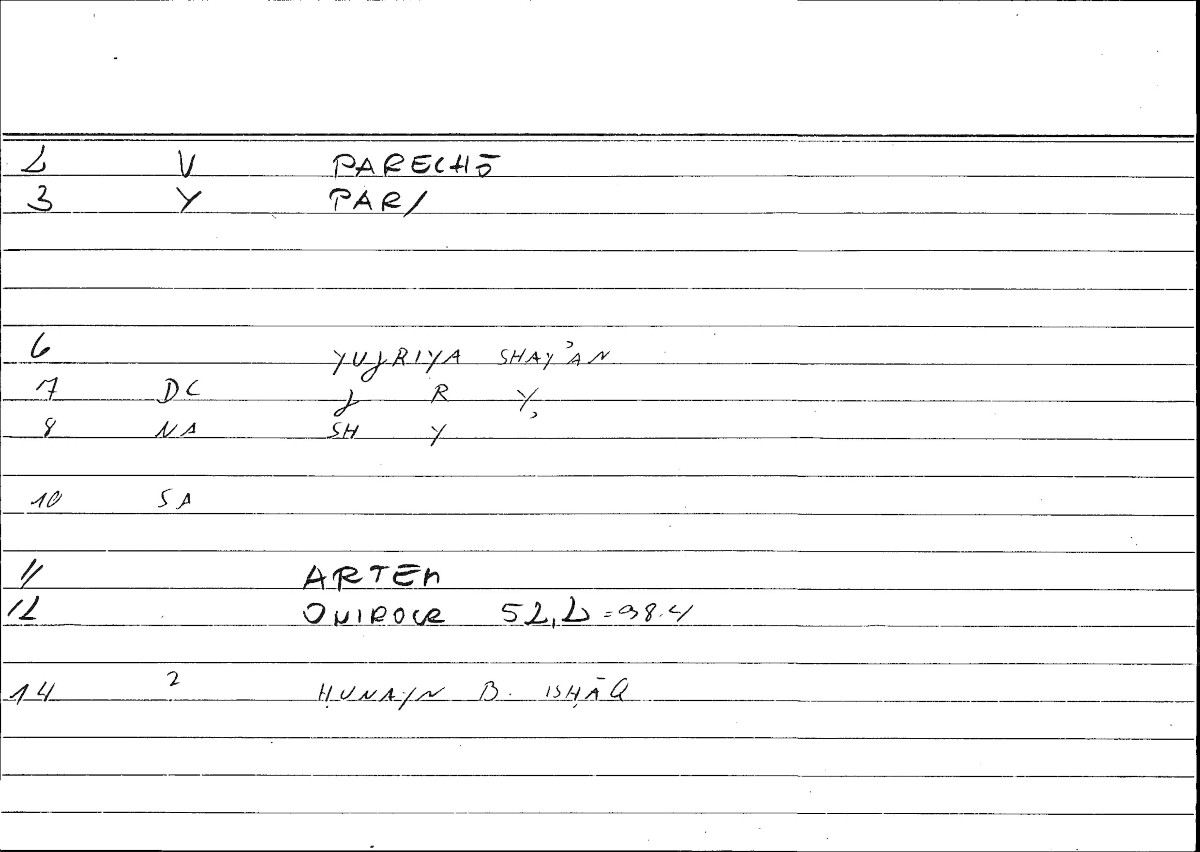 2 V PARECHŌ
3 Y PAR/
6 YUJRIYA SHAY'AN
7 DC J R Y,
8 NA SH Y
10 SA
11 ARTEM
12 ONIROCR 52,2=98.4
14 2 ḤUNAYN B. ISḤĀQ